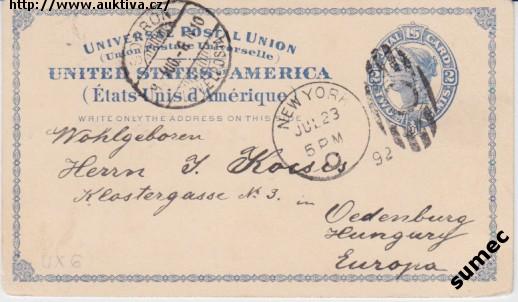 http://www.auktiva.cz/
UNIVERSAL POSTAL UNION
(Union Postale Universelle)
UNITED STATES AMERICA
(États-Unis d'Amérique)
WRITE ONLY THE ADDRESS ON THIS SIDE
U.S. POSTAL CARD
TWO CENTS
NEW YORK
JUL 23
5 PM
92
Wohlgeboren
Herrn J. Kocsis
Klostergasse No 3.
in
Oedenburg
Hungury
Europa
UX6
sumec